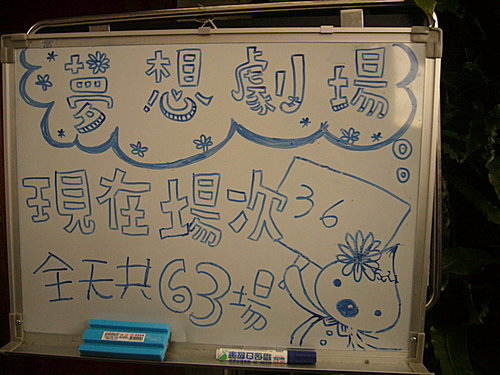 夢想劇場
現在場次 36
全天共63場